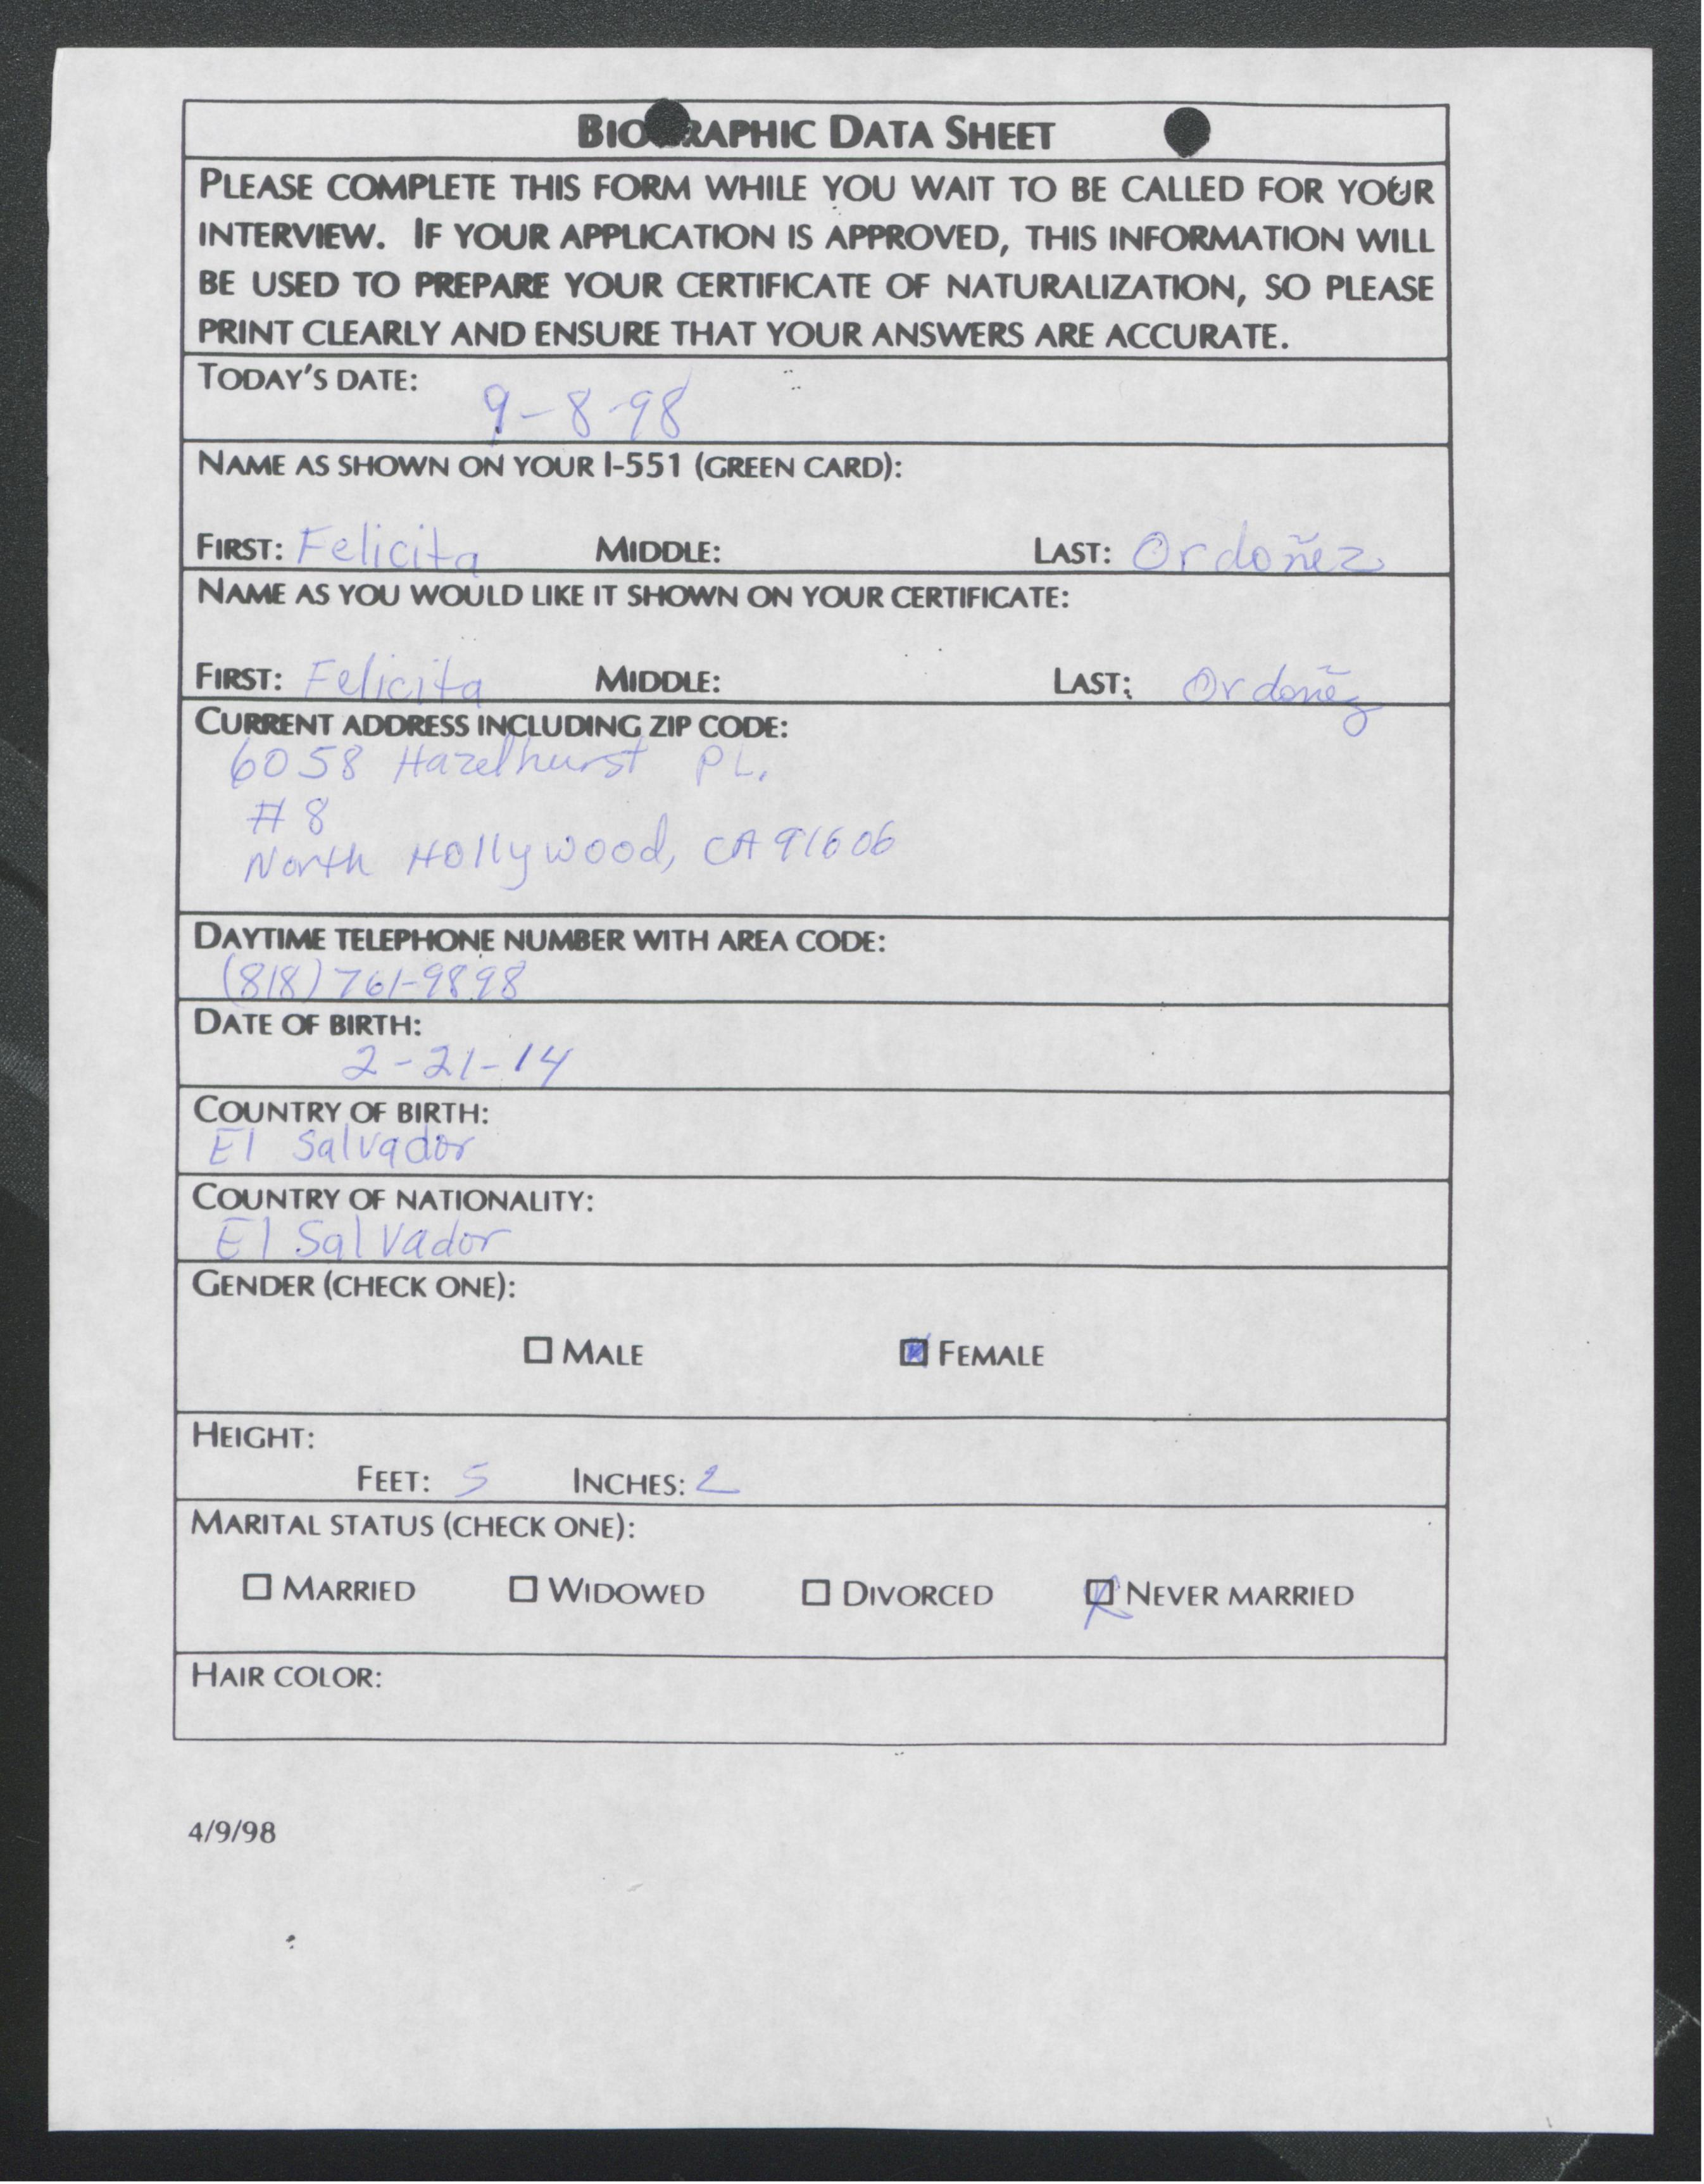 BIOGRAPHIC DATA SHEET
PLEASE COMPLETE THIS FORM WHILE YOU WAIT TO BE CALLED FOR YOUR
INTERVIEW. IF YOUR APPLICATION IS APPROVED, THIS INFORMATION WILL
BE USED TO PREPARE YOUR CERTIFICATE OF NATURALIZATION, SO PLEASE
PRINT CLEARLY AND ENSURE THAT YOUR ANSWERS ARE ACCURATE.
TODAY'S DATE:
9-8-98
NAME AS SHOWN ON YOUR I-551 (GREEN CARD):
FIRST: Felicita MIDDLE: LAST: Ordoñez
NAME AS YOU WOULD LIKE IT SHOWN ON YOUR CERTIFICATE:
FIRST: Felicita MIDDLE: LAST: Ordoñez
CURRENT ADDRESS INCLUDING ZIP CODE:
6058 Hazelhurst PL.
#8
North Hollywood, CA 91606
DAYTIME TELEPHONE NUMBER WITH AREA CODE:
(818) 761-9898
DATE OF BIRTH:
2-21-14
COUNTRY OF BIRTH:
El Salvador
COUNTRY OF NATIONALITY:
El Salvador
GENDER (CHECK ONE):
MALE FEMALE
HEIGHT:
FEET: 5 INCHES: 2
MARITAL STATUS (CHECK ONE):
MARRIED WIDOWED DIVORCED NEVER MARRIED
HAIR COLOR:
4/9/98